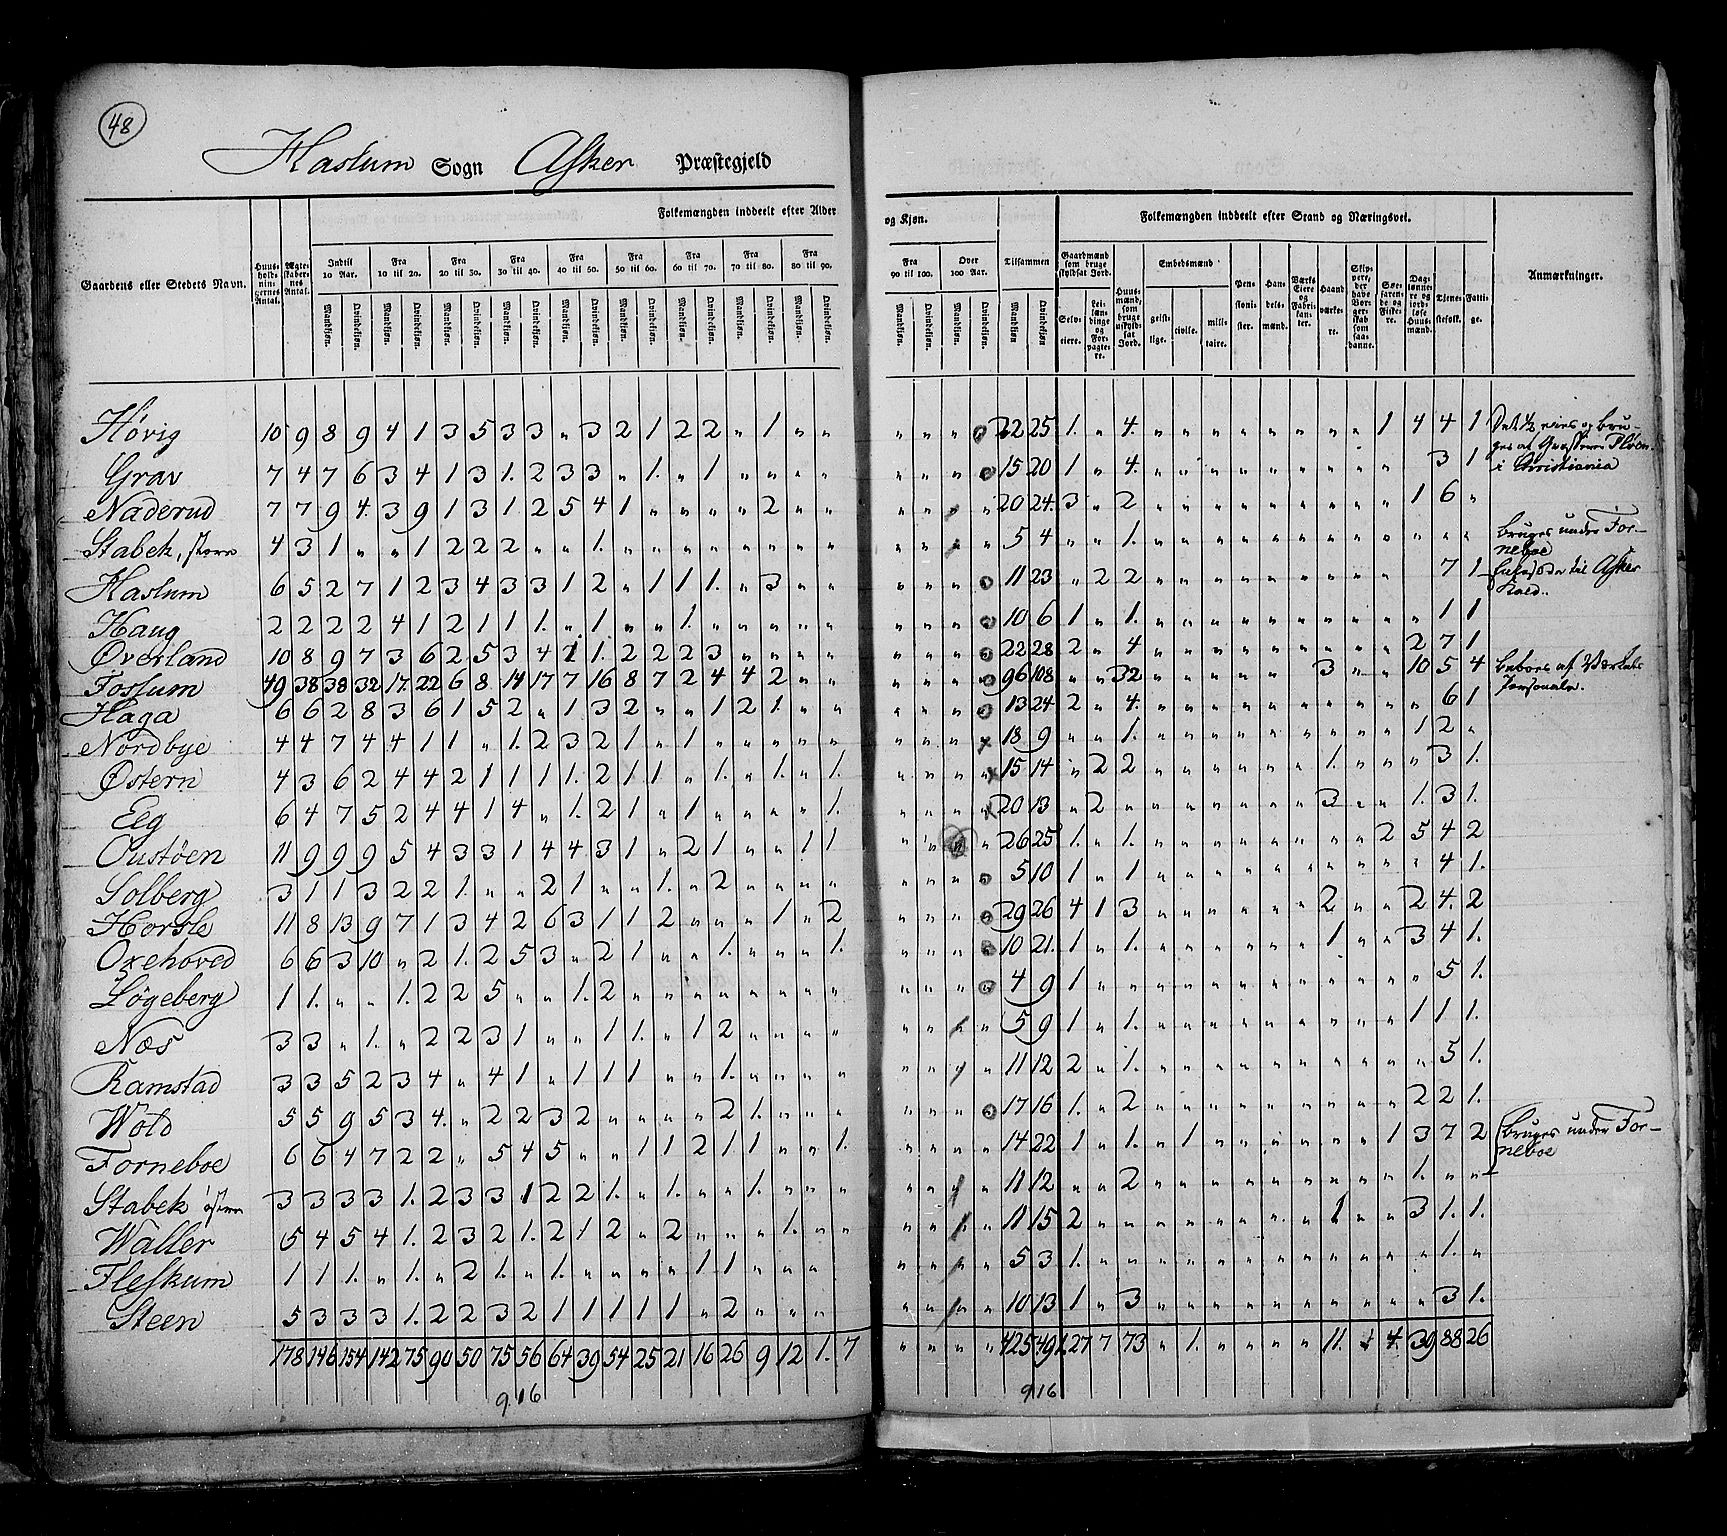 48
Haslum Sogn Asker Præstegjeld
Folkemængden inddeelt efter Alder og Kjøn.
Folkemængden inddeelt efter Stand og Næringsvei.
Gaardens eller Stedets Navn.
Huusholdningernes Antal.
Ægteskabernes Antal.
Indtil 10 Aar.
Fra 10 til 20.
Fra 20 til 30.
Fra 30 til 40.
Fra 40 til 50.
Fra 50 til 60.
Fra 60 til 70.
Fra 70 til 80.
Fra 80 til 90.
Fra 90 til 100.
Over 100 Aar.
Tilsammen
Mandkjøn. Qvindekjøn.
Gaardmænd som bruge skyldsat Jord.
Selveiere.
Leilændinge og Forpagtere.
Huusmænd, som bruge uskyldsat Jord.
Embedsmænd
geistlige.
civile.
militaire.
Pensionister.
Handelsmænd.
Værks Eiere og Fabrikanter.
Haandværkere.
Skippere, der have Borgerskab som saadanne.
Søefarende og Fiskere.
Daglønnere og jordløse Huusmænd.
Tjenestefolk.
Fattige.
Anmærkninger.
Høvig 10 9 8 9 4 1 3 5 3 3 „ 3 2 1 2 2 „ 1 „ „ „ „ „ 22 25 1. „ 4. „ „ „ „ „ „ „ „ 1 4 4 1
Grav 7 4 7 6 3 4 1 3 1. 2 3 3 „ 1. „ 1 „ „ „ „ „ „ „ 15 20 1 „ 4. „ „ „ „ „ „ „ „ „ 3 1
i Christiania
Naderud 7 7 9 4. 3 9 1 3 1. 2 5 4 1 „ „ „ „ 2 „ „ „ „ „ 20 24. 3 „ 2 „ „ „ „ „ „ „ „ „ 1 6 „
Stabek, store 4 3 1 „ „ 1 2 2 2 „ „ 1. „ „ „ „ „ „ „ „ „ „ „ 5 4 „ „ 1. „ „ „ „ „ „ „ „ „ „ „ „ bruges under Forneboe
Haslum 6 5 2 7 1 2 3 4 3 3 1 2 „ 1 1 1. „ 3 „ „ „ „ „ 11 23 „ 2 2 „ „ „ „ „ „ „ „ „ 7 1 til Asker Kald..
Haug 2 2 2 2 4 1 2 1 1 1. „ 1 „ „ 1. „ „ „ „ „ „ „ „ 10 6 1 „ 1. „ „ „ „ „ „ „ „ „ „ 1 1
Øverland 10 8 9 7 3 6 2 5 3 4 1 1. 2 2 2 3 „ „ „ „ „ „ „ 22 28 2 „ 4 „ „ „ „ „ „ „ „ „ 2 7 1
Fossum 49 38 38 32 17. 22 6 8 14 17 7 16 8 7 2 4 4 2 „ „ „ „ „ 96 108 „ „ 32 „ „ „ „ „ „ 3 „ „ 10 5 4 beboes af Værkets Personale.
Haga 6 6 2 8 3 6 1 5 2 „ 1 3 2 „ „ 1 2 1. „ „ „ „ „ 13 24 2 „ 4. „ „ „ „ „ „ „ „ „ „ 6 1
Nordbye 4 4 7 4 4 1 1 „ 1. 2 3 2 1 „ 1 „ „ „ „ „ „ „ „ 18 9 „ „ 1. „ „ „ „ „ „ „ „ „ 1 2 „
Østern 4 3 6 2 4 4 2 1 1 1 1. 2 1 1 „ 1. „ 1. „ 1. „ „ „ 15 14 „ 2 2 „ „ „ „ „ „ 1. „ „ „ 3 1.
Eeg 6 4 7 5 2 4 4 1 4 „ 1. 2 1 „ 1 „ „ „ „ 1. „ „ „ 20 13 „ 2 „ „ „ „ „ „ „ 3 „ „ 1. 3 1.
Oustøen 11 9 9 9 5 4 3 3 1 4 4 3 1 „ 2 1 „ „ 1 1 „ „ „ 26 25 1. „ 1. „ „ „ „ „ „ „ „ 2 5 4 2
Solberg 3 1 1 3 2 2 1. „ „ 2 1 „ „ 1. „ 2 „ „ „ „ „ „ „ 5 10 1 „ 1 „ „ „ „ „ „ „ „ „ „ 4 1.
Horsle 11 8 13 9 7 1 3 4 2 6 3 1 1 2 „ „ „ 1 „ 2 „ „ „ 29 26 4 1 3 „ „ „ „ „ „ 2 „ „ 2 4. 2
Oxehoved 6 6 3 10 „ 2 1. 2 5 3 „ 2 1 „ „ 1. „ „ „ 1. „ „ „ 10 21. 1 „ 1. „ „ „ „ „ „ 1 „ „ 3 4 1.
Løgeberg 1 1. „ „ 1. 2 2 5 „ „ 1. 2 „ „ „ „ „ „ „ „ „ „ „ 4 9 1 „ „ „ „ „ „ „ „ „ „ „ „ 5 1.
Næs 3 3 „ 1. „ 2 2 3 1 „ „ 1 1. „ 1 2 „ „ „ „ „ „ „ 5 9 1 „ 1. „ „ „ „ „ „ „ „ „ 1 1 1.
Ramstad 3 3 5 2 3 4 „ 4 1 „ 1 1 1 „ „ 1. „ „ „ „ „ „ „ 11 12 2 „ 1. „ „ „ „ „ „ „ „ „ „ 5 1.
Wold 5 5 9 5 3 4. „ 2 2 3 2 „ „ „ „ 2 1. „ „ „ „ „ „ 17 16 1. „ 2 „ „ „ „ „ „ „ „ „ 2 2 1.
Forneboe 6 6 4 7 2 2 „ 5 4 5 „ „ 1 1 2 1 1 „ „ 1. „ „ „ 14 22 1 „ 1. „ 1 „ „ „ „ „ „ 1 3 7 2 bruges under Forneboe
Stabek østre 3 3 3 3 1. 2 3 3 1 2 2 1. „ 1. „ „ 1. „ „ „ „ „ „ 11 12 „ „ 2 „ „ „ „ „ „ „ „ „ 1. „ „
Waller 5 4 5 4 1. 2 3 2 1. 2 1 2 „ 2 „ „ „ 1. „ „ „ „ „ 11 15 2 „ „ „ „ „ „ „ „ 1 „ „ 3 1. 1.
Fleskum 1 1 1. „ 1. „ 2 1. „ 1. „ „ „ „ 1 1 „ „ „ „ „ „ 5 3 1. „ „ „ „ „ „ „ „ „ „ „ „ 1. „
Steen 5 3 3 3 1. 2 2 3 2 1 1 1 1 1 „ 2 „ „ „ „ „ „ 10 13 1 „ 3 „ „ „ „ „ „ „ „ „ „ 3 1.
178 146 154 142 75 90 50 75 56 64 39 54 25 21 16 26 9 12 1. 7 „ „ „ „ 425 491 27 7 73 „ 1. „ „ „ „ 11. „ 4. 39 88 26
916
916